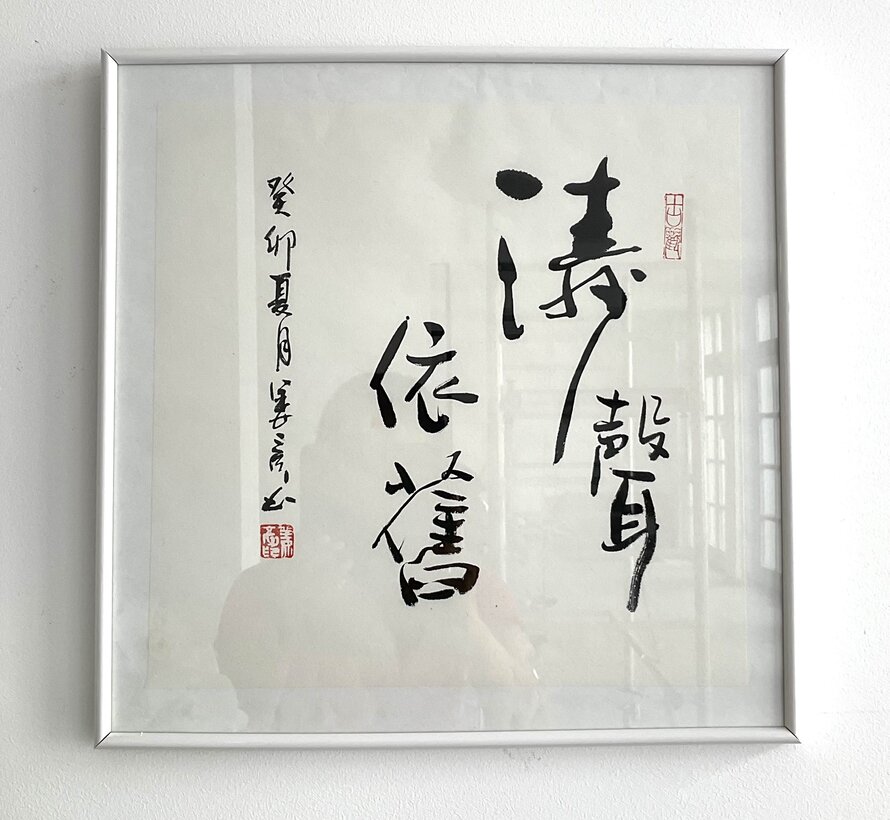 濤聲
依舊
癸卯夏月姜彥書